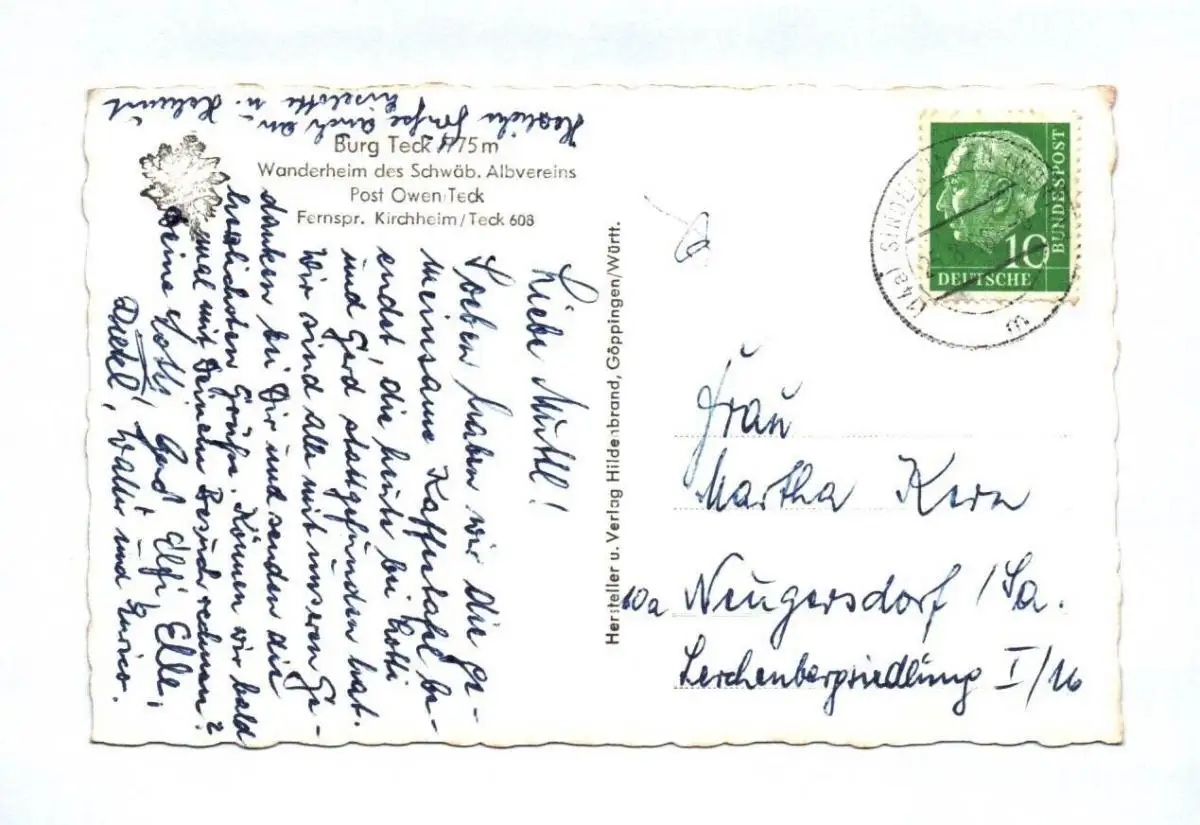 Burg Teck 775 m
Wanderheim des Schwäb. Albvereins
Post Owen/Teck
Fernspr. Kirchheim/Teck 608
Liebe Muttl!
Soeben haben wir die ge-
meinsame Kaffeetafel be-
endet, die heute bei Lotti
und Gerd stattgefunden hat.
Wir sind alle mit unseren Ge-
danken bei Dir und senden die
herzlichsten Grüße. Können wir bald
mal mit Deinem Besuch rechnen?
Deine Lotti, Gerd, Elfi, Elle,
Dietel, Walter und Enrico.
Herzliche Grüße auch von
Liselotte u. Helmut
Hersteller u. Verlag Hildenbrand, Göppingen/Württ.
(14a) SINDELFINGEN
m
10
DEUTSCHE
BUNDESPOST
Frau
Martha Kern
10a Neugersdorf / Sa.
Lerchenbergsiedlung I/16